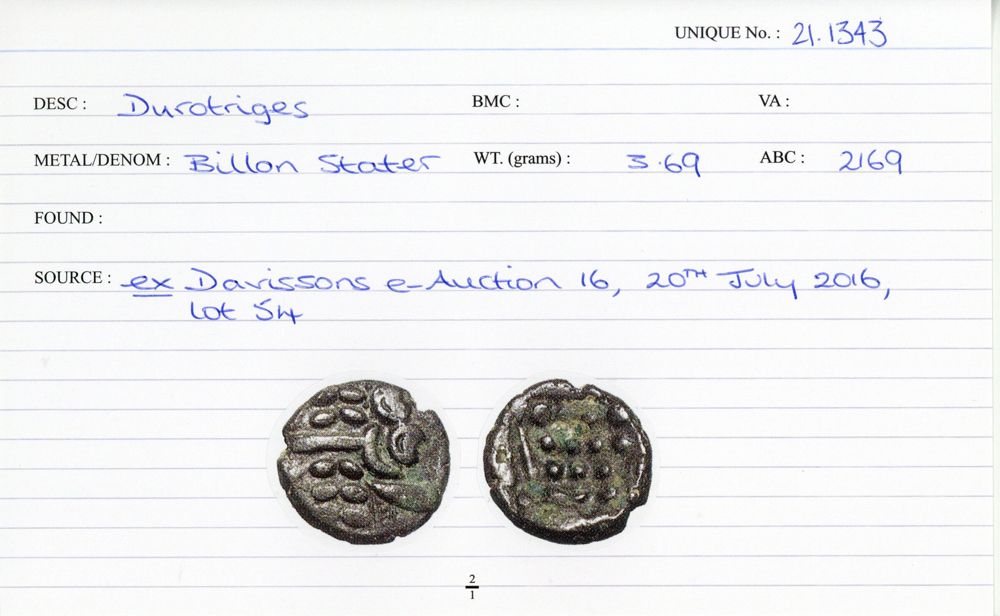 UNIQUE No. : 21.1343
DESC : Durotriges BMC : VA :
METAL/DENOM : Billon Stater WT. (grams) : 3.69 ABC : 2169
FOUND :
SOURCE : ex Davissons e-Auction 16, 20TH July 2016,
lot 54
2
1